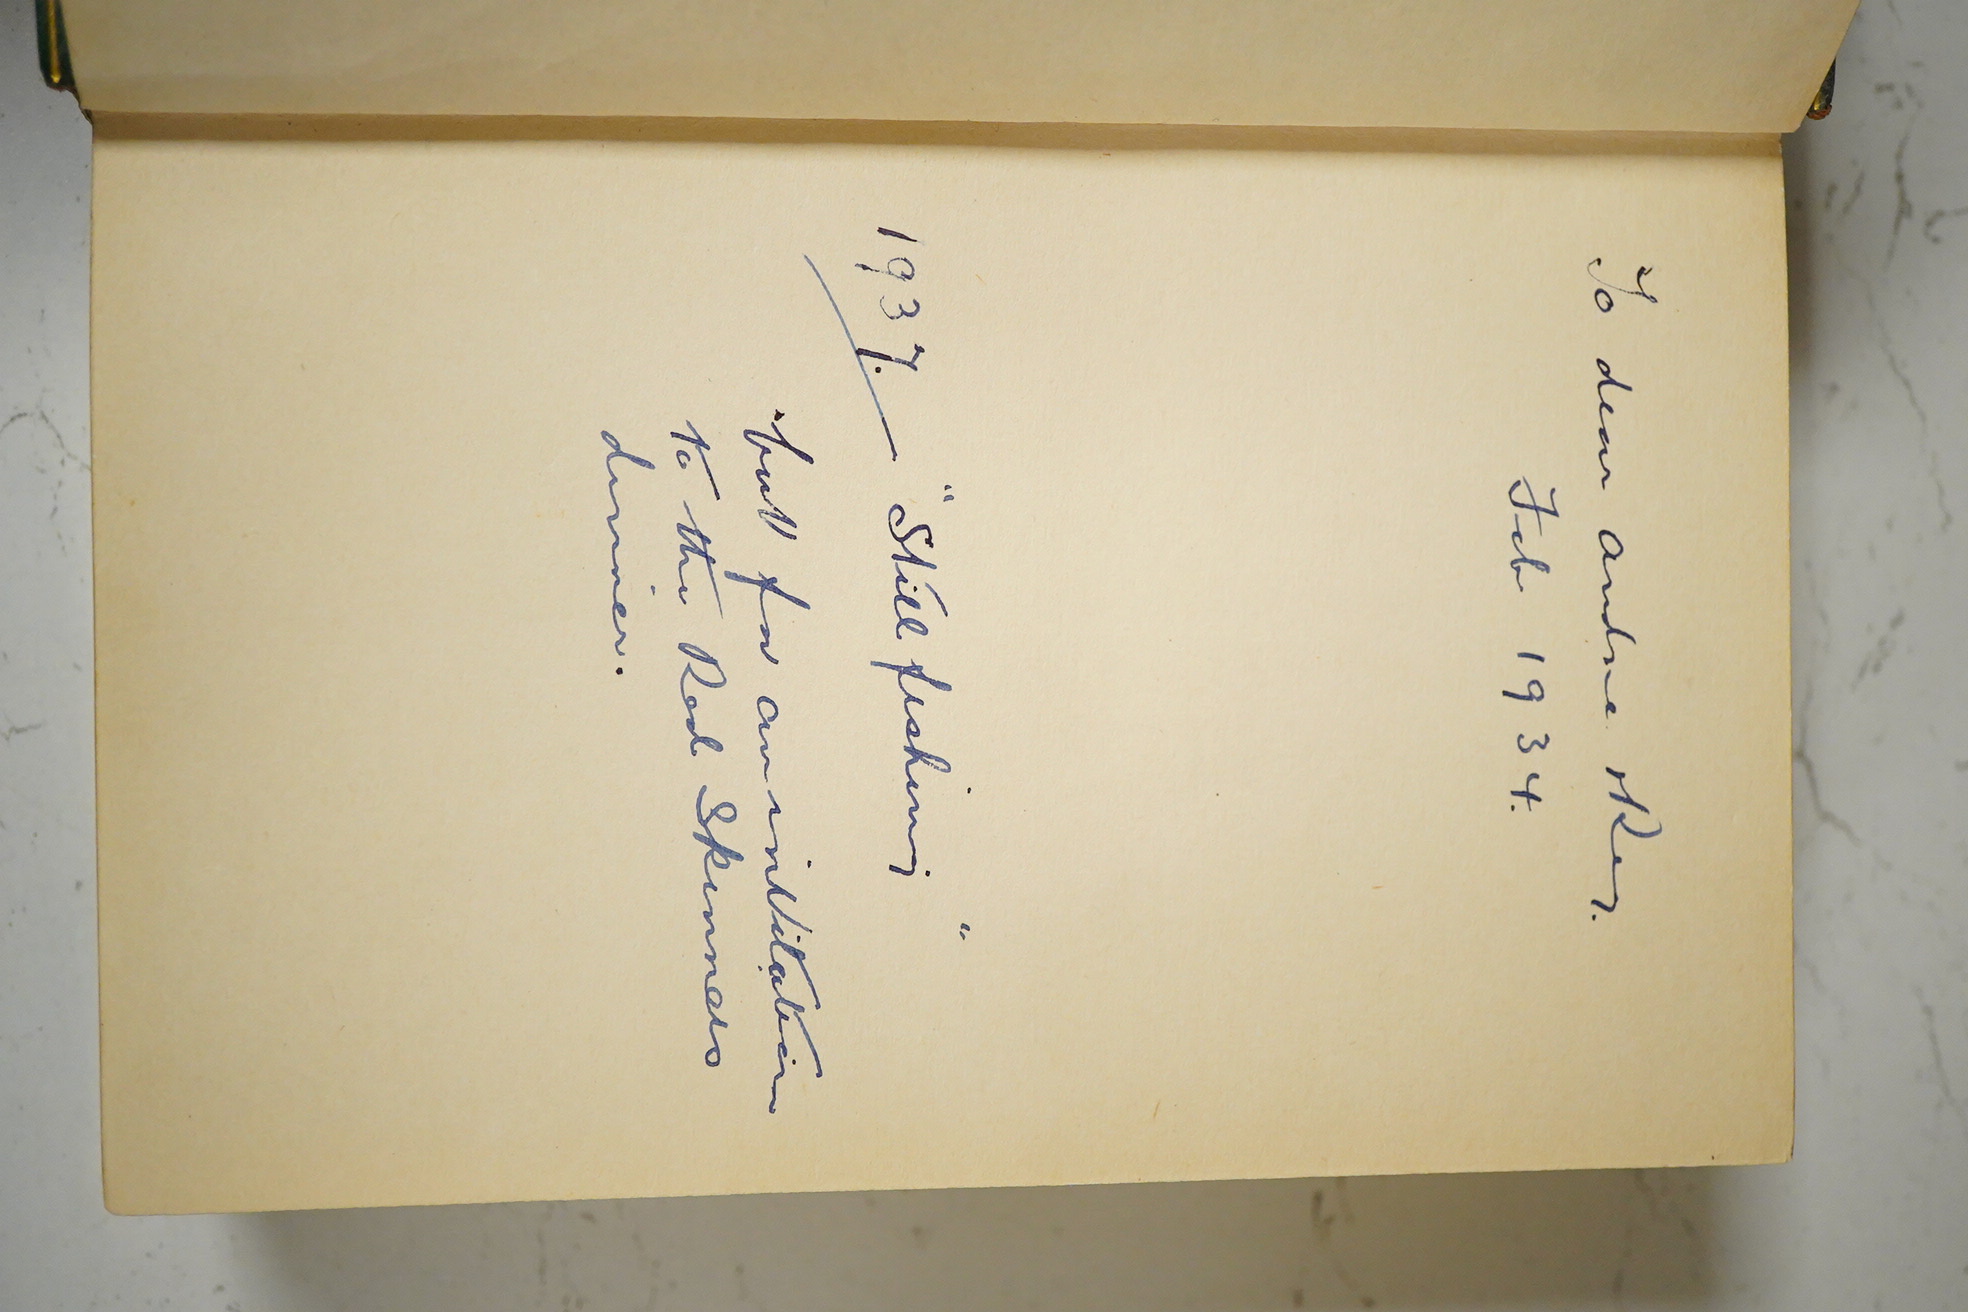 To dear Andrie Rey.
Feb 1934.
1937. — "Still fishing"
"but for an invitation
to the Red Skinners
dinner.